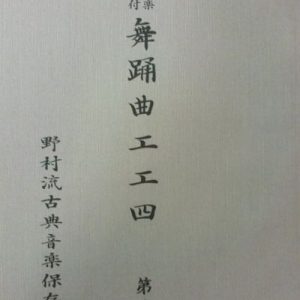 楽
付
舞踊曲工工四 第
野村流古典音楽保存